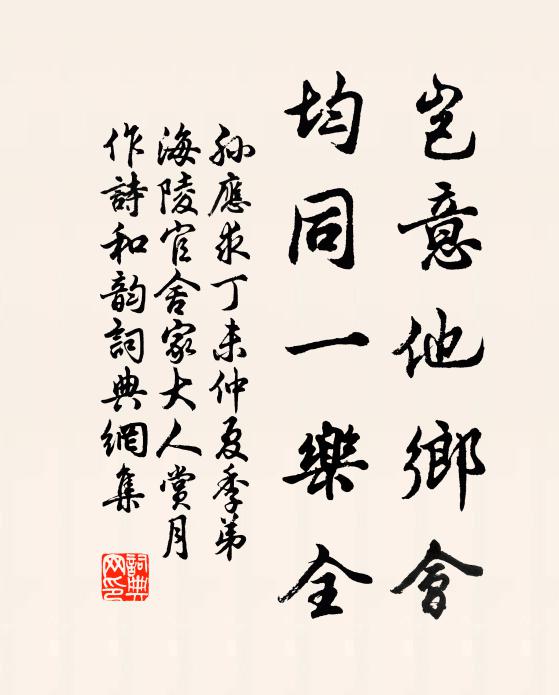 豈意他鄉會
均同一樂全
孙應求丁未仲夏季弟
海陵官舍家大人賞月
作詩和韵詞典網集
詞典網印